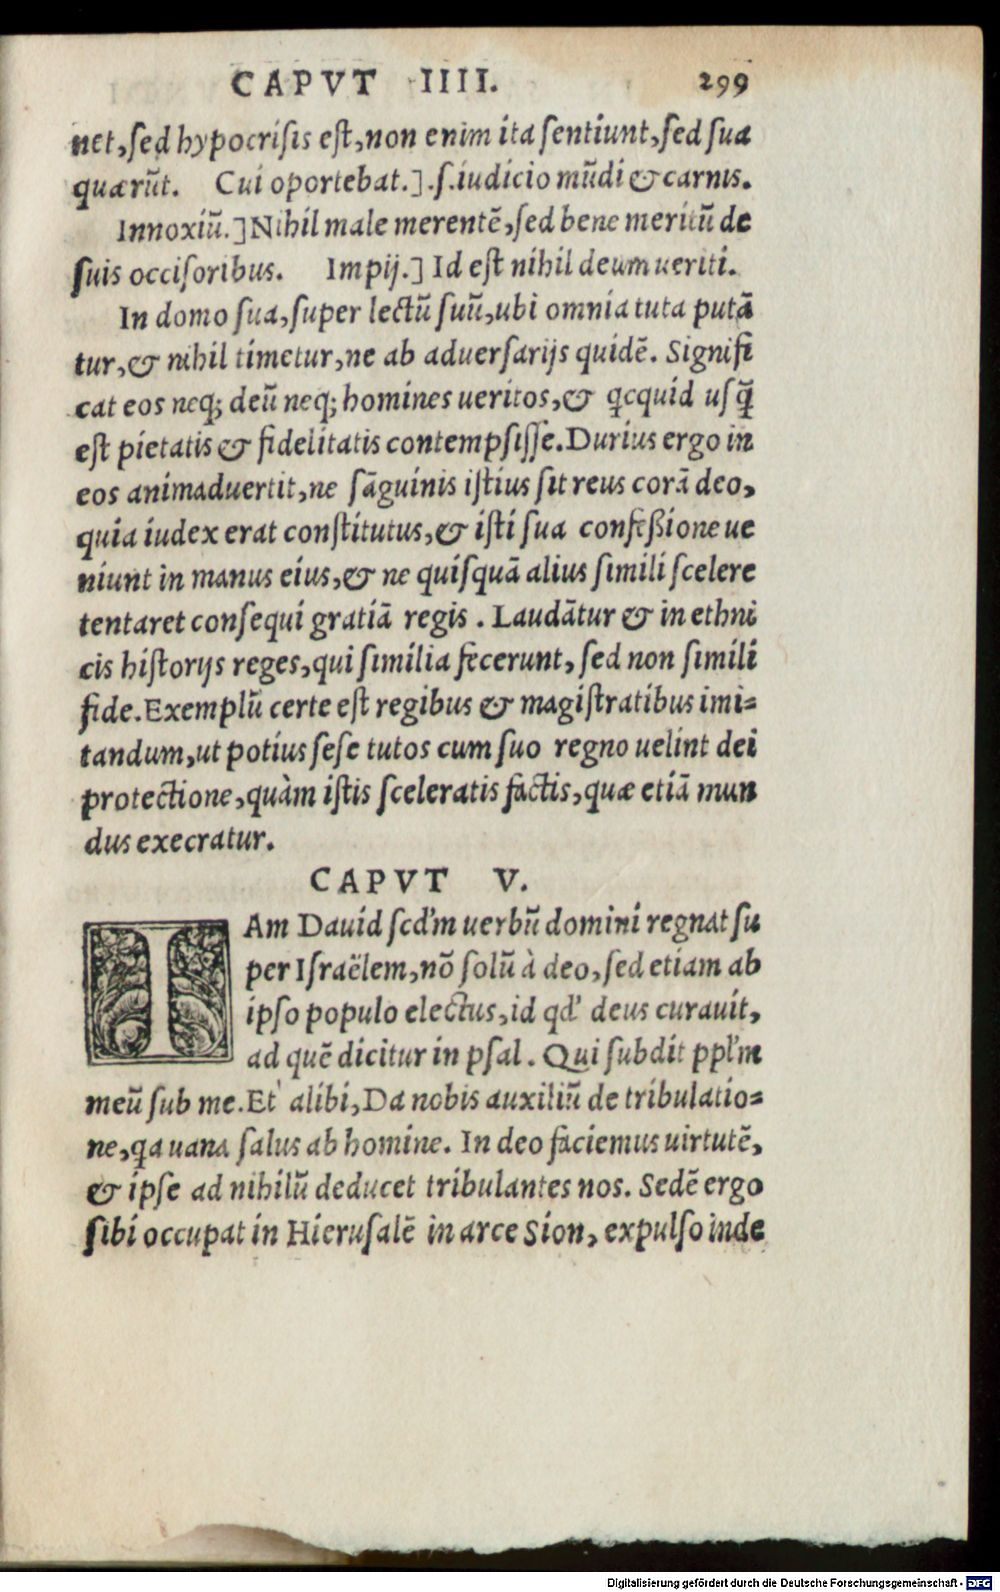 CAPVT IIII. 299
net, ſed hypocriſis eſt, non enim ita ſentiunt, ſed ſua
quærūt. Cui oportebat.] .ſ. iudicio mūdi & carnis.
Innoxiū.] Nihil male merentē, ſed bene meritū de
ſuis occiſoribus. Impij.] Id eſt nihil deum ueriti.
In domo ſua, ſuper lectū ſuū, ubi omnia tuta putā
tur, & nihil timetur, ne ab aduerſarijs quidē. Signifi
cat eos neq; deū neq; homines ueritos, & qcquid uſq̃
eſt pietatis & fidelitatis contempſiſſe. Durius ergo in
eos animaduertit, ne ſāguinis iſtius ſit reus corā deo,
quia iudex erat conſtitutus, & iſti ſua confeßione ue
niunt in manus eius, & ne quiſquā alius ſimili ſcelere
tentaret conſequi gratiā regis. Laudātur & in ethni
cis hiſtorijs reges, qui ſimilia fecerunt, ſed non ſimili
fide. Exemplū certe eſt regibus & magiſtratibus imi=
tandum, ut potius ſeſe tutos cum ſuo regno uelint dei
protectione, quàm iſtis ſceleratis factis, quæ etiā mun
dus execratur.
CAPVT V.
IAm Dauid ſcd'm uerbū domini regnat ſu
per Iſraëlem, nō ſolū à deo, ſed etiam ab
ipſo populo electus, id qd' deus curauit,
ad quē dicitur in pſal. Qui ſubdit ppl'm
meū ſub me. Et alibi, Da nobis auxiliū de tribulatio=
ne, qa uana ſalus ab homine. In deo faciemus uirtutē,
& ipſe ad nihilū deducet tribulantes nos. Sedē ergo
ſibi occupat in Hieruſalē in arce Sion, expulſo inde
Digitalisierung gefördert durch die Deutsche Forschungsgemeinschaft - DFG